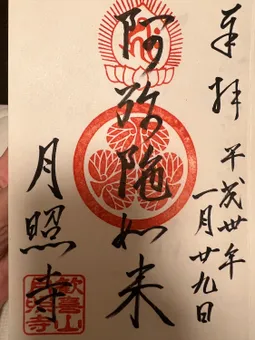 奉拝
平成卅年
一月廿九日
阿弥陁如来
月照寺
歡喜山
月照寺